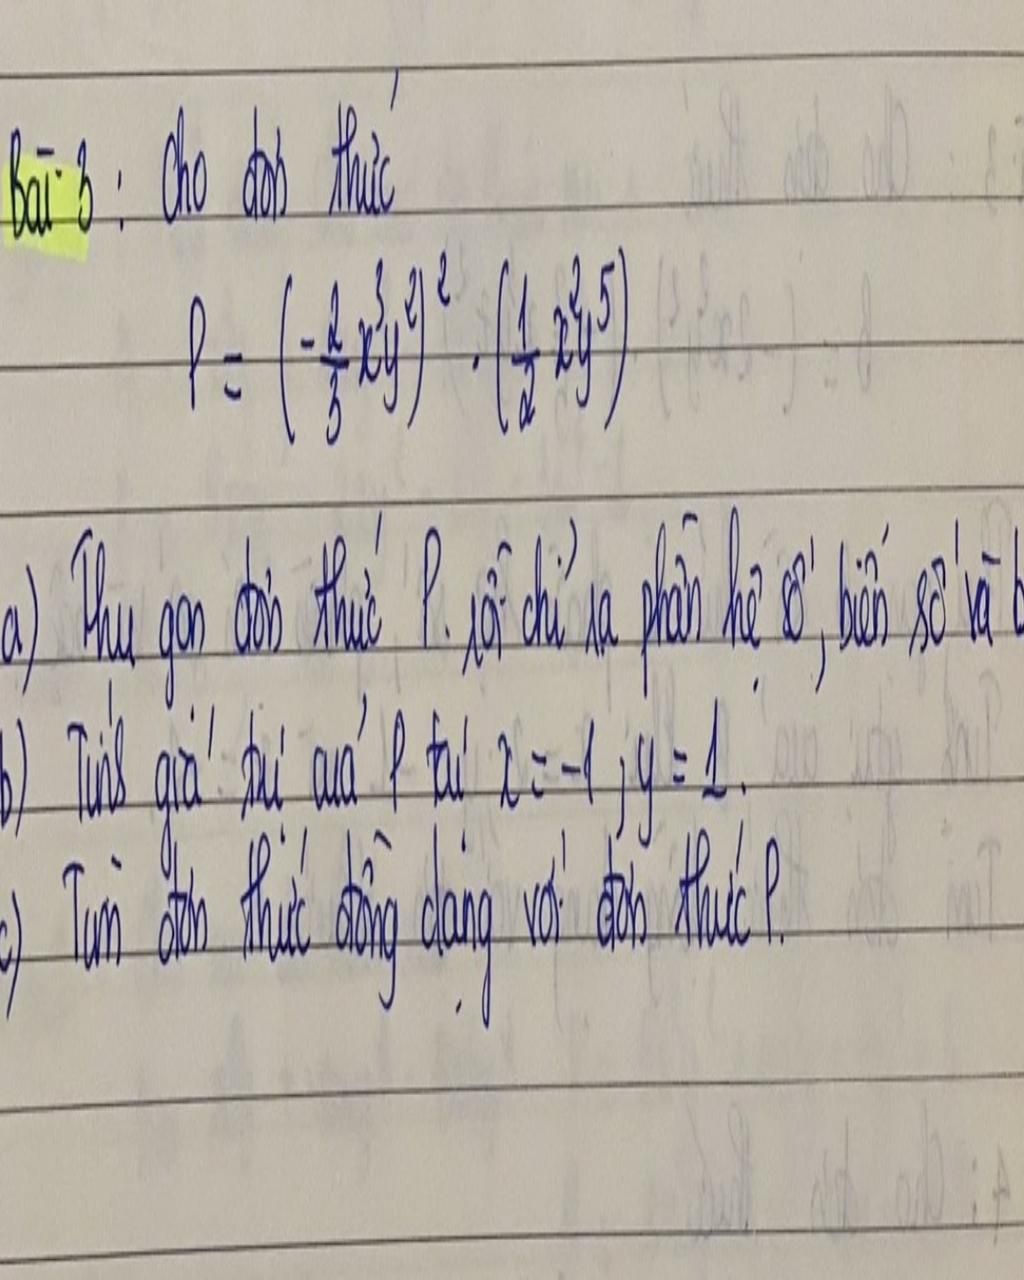 Bài 3: Cho đơn thức
P = (-2/3 x³y²)² . (1/2 x²y⁵)
a) Thu gọn đơn thức P. rồi chỉ ra phần hệ số, biến số và b
b) Tính giá trị của P tại x = -1 ; y = 1.
c) Tìm đơn thức đồng dạng với đơn thức P.